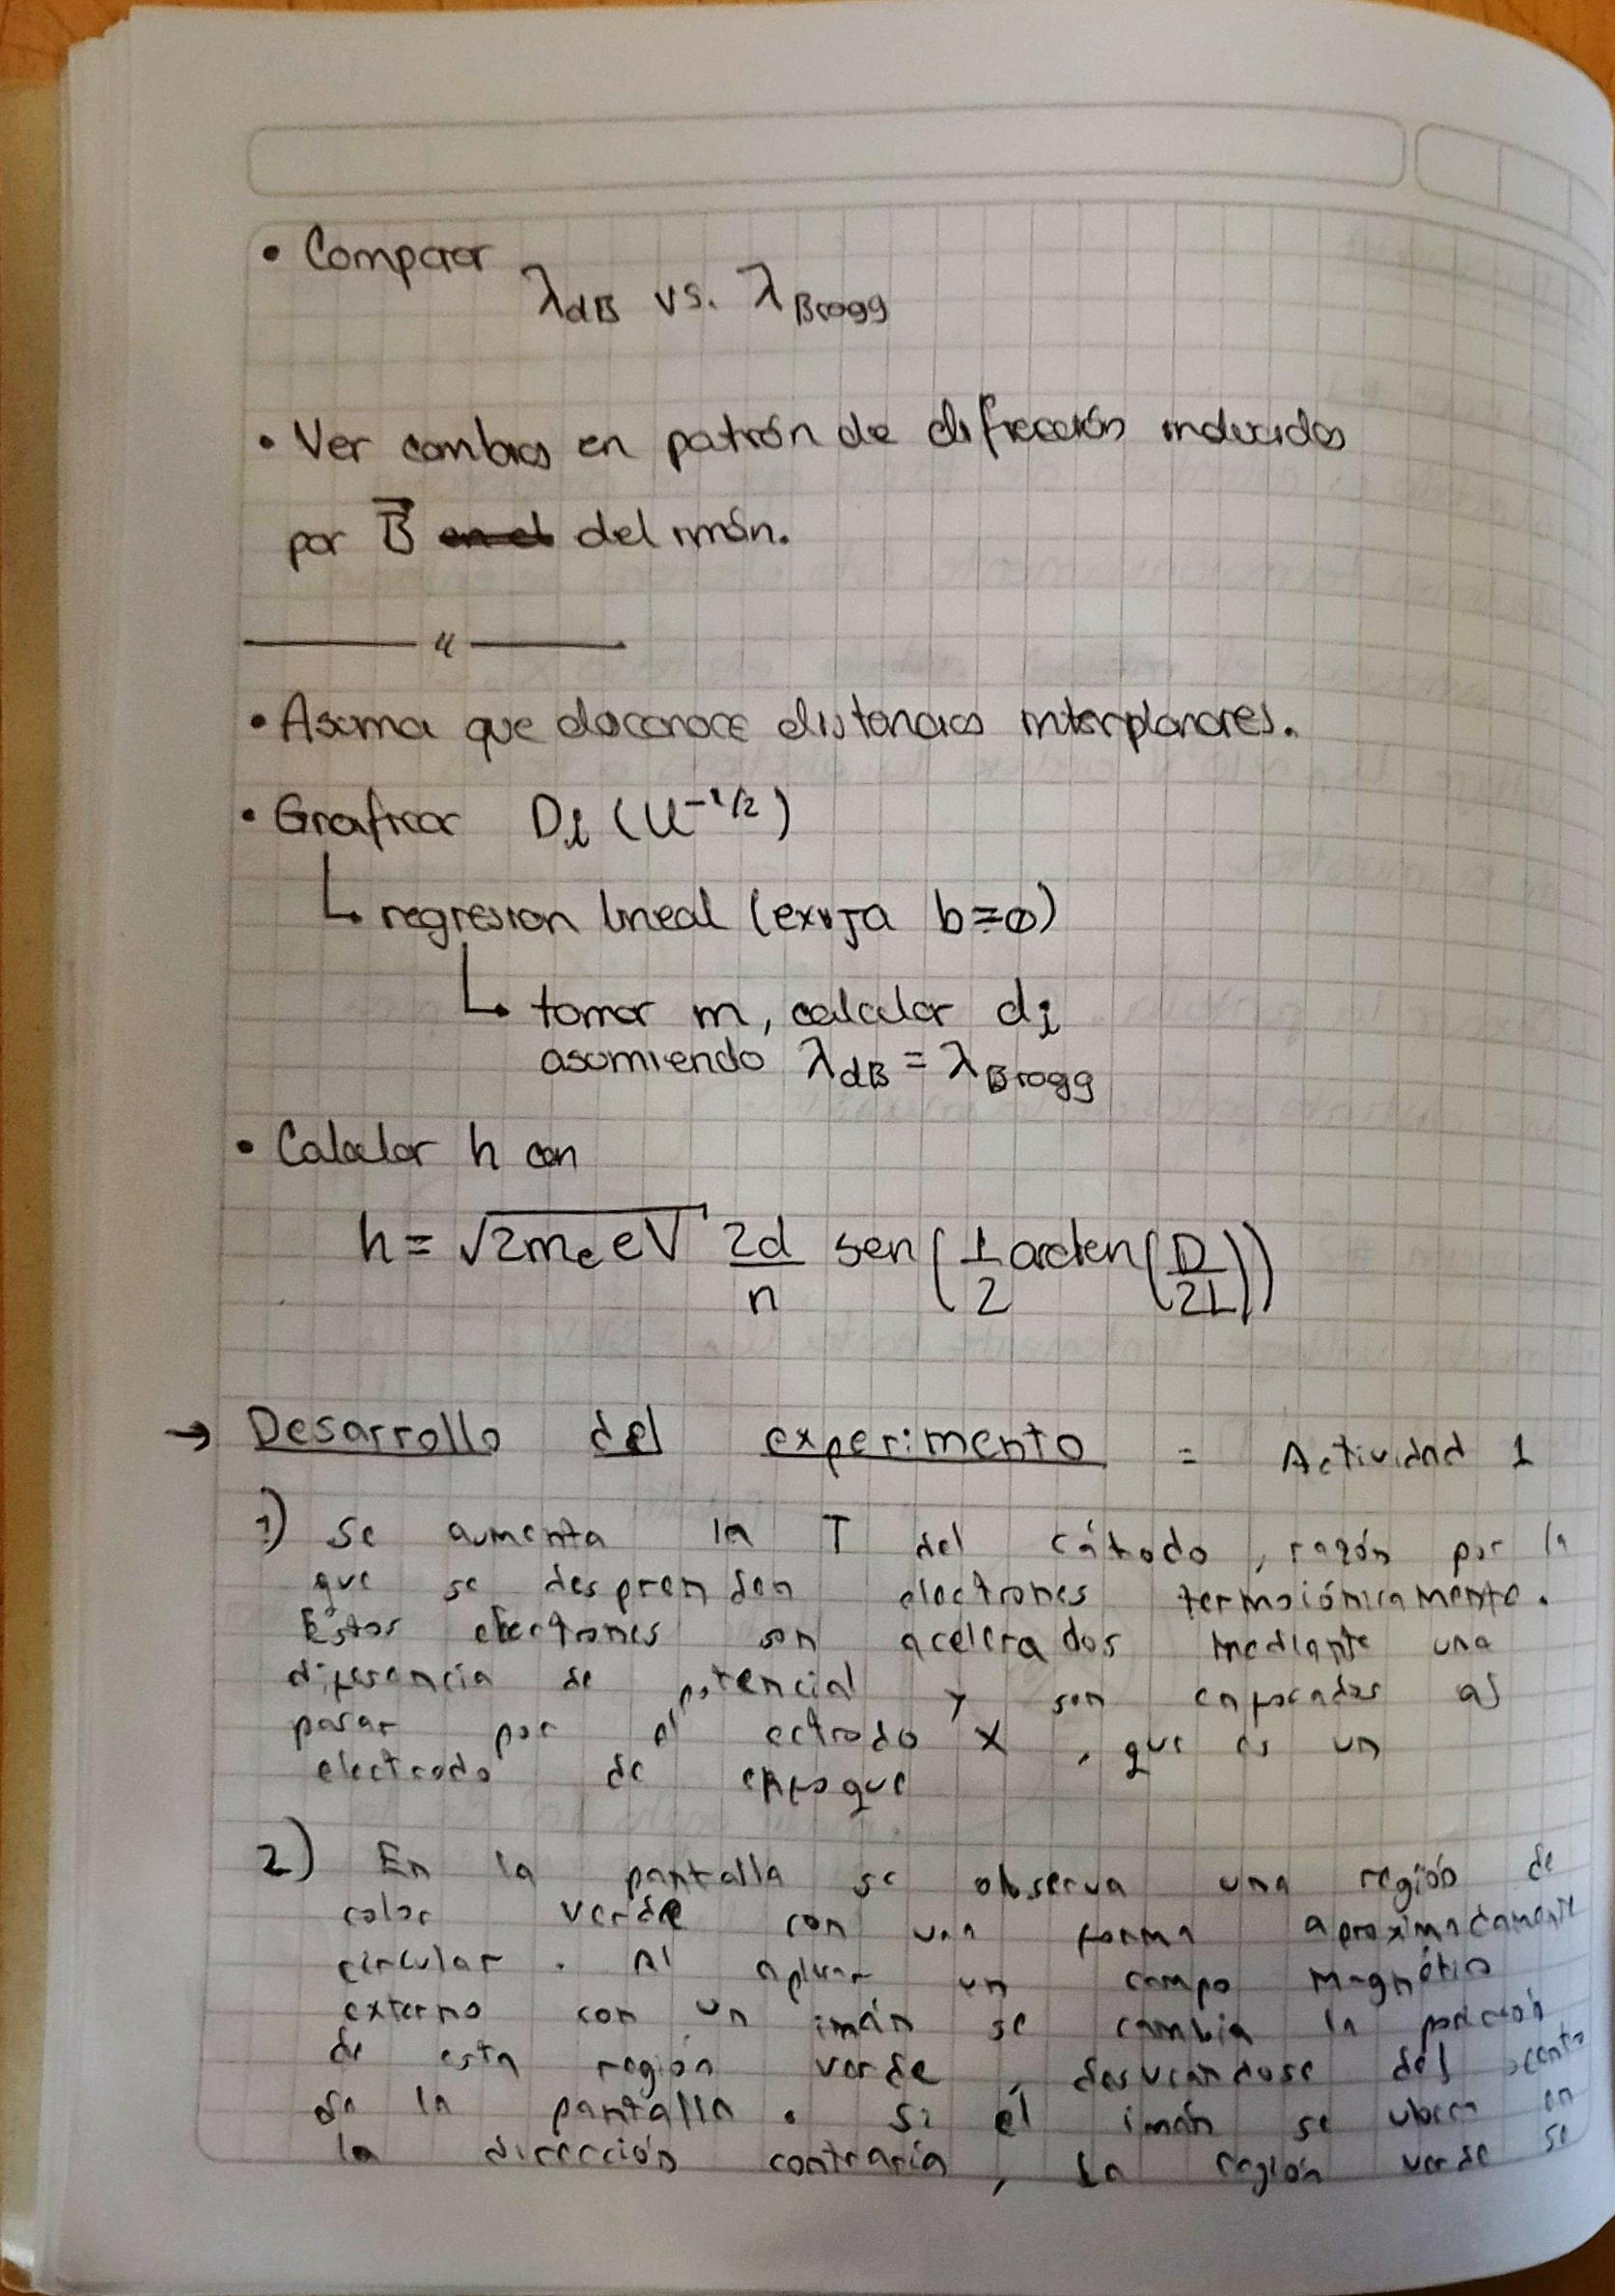 • Comparar
λdB vs. λBragg
• Ver cambios en patrón de difracción inducidos
por B⃗ ~~en el~~ del imán.
——— 4 ———
• Asuma que desconoce distancias interplanares.
• Graficar Di (U^-1/2)
↳ regresion lineal (exija b=0)
↳ tomar m, calcular di
asumiendo λdB = λBragg
• Calcular h con
h = √(2me eV) 2d/n sen(1/2 arcten(D/2L))
→ Desarrollo del experimento = Actividad 1
1) Se aumenta la T del cátodo, razón por la
que se desprenden electrones termoiónicamente.
Estos electrones son acelerados mediante una
diferencia de potencial y son enfocados al
pasar por el ectrodo X, que es un
electrodo de enfoque
2) En la pantalla se observa una región de
color verde con una forma aproximadamente
circular. Al aplicar un campo magnético
externo con un imán se cambia la posición
de esta región verde, desviandose del centro
de la pantalla. Si el imán se ubica en
la dirección contraria, la región verde se